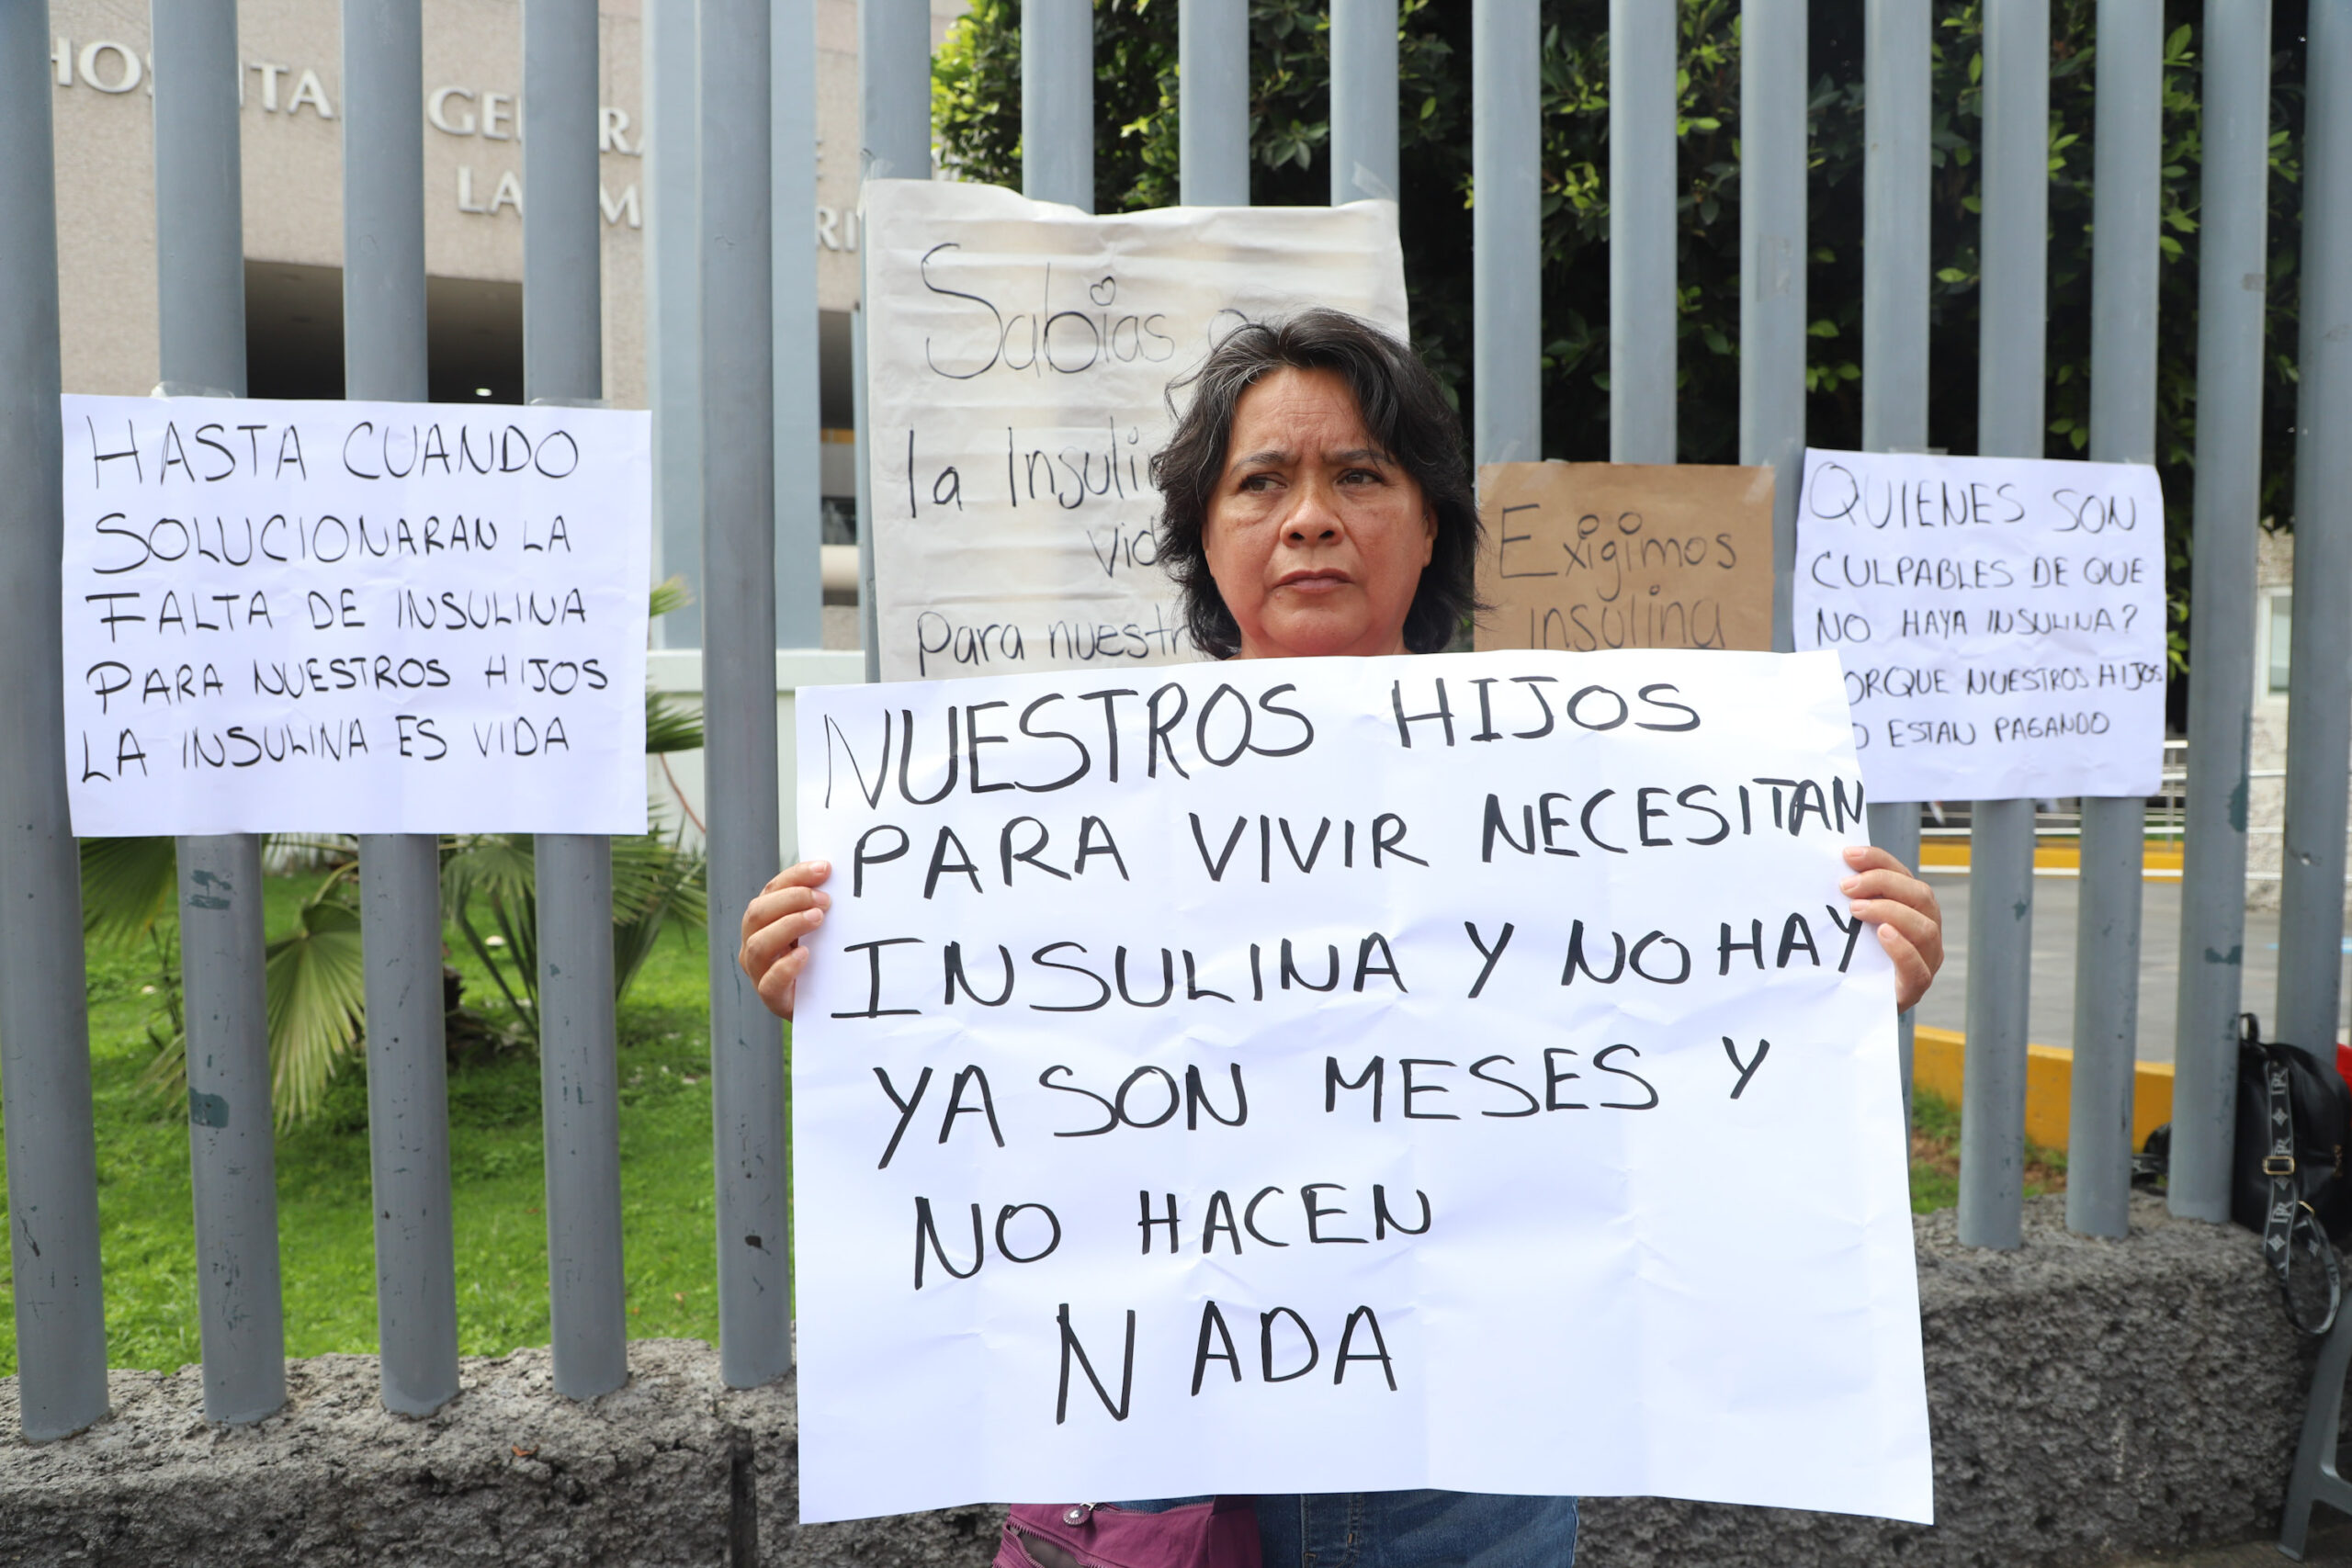 HOSPITAL GENERAL
HASTA CUANDO
SOLUCIONARAN LA
FALTA DE INSULINA
PARA NUESTROS HIJOS
LA INSULINA ES VIDA
Sabias
la
para
Exigimos
insulina
QUIENES SON
CULPABLES DE QUE
NO HAYA INSULINA?
NUESTROS HIJOS
ESTAN PAGANDO
NUESTROS HIJOS
PARA VIVIR NECESITAN
INSULINA Y NO HAY
YA SON MESES Y
NO HACEN
NADA